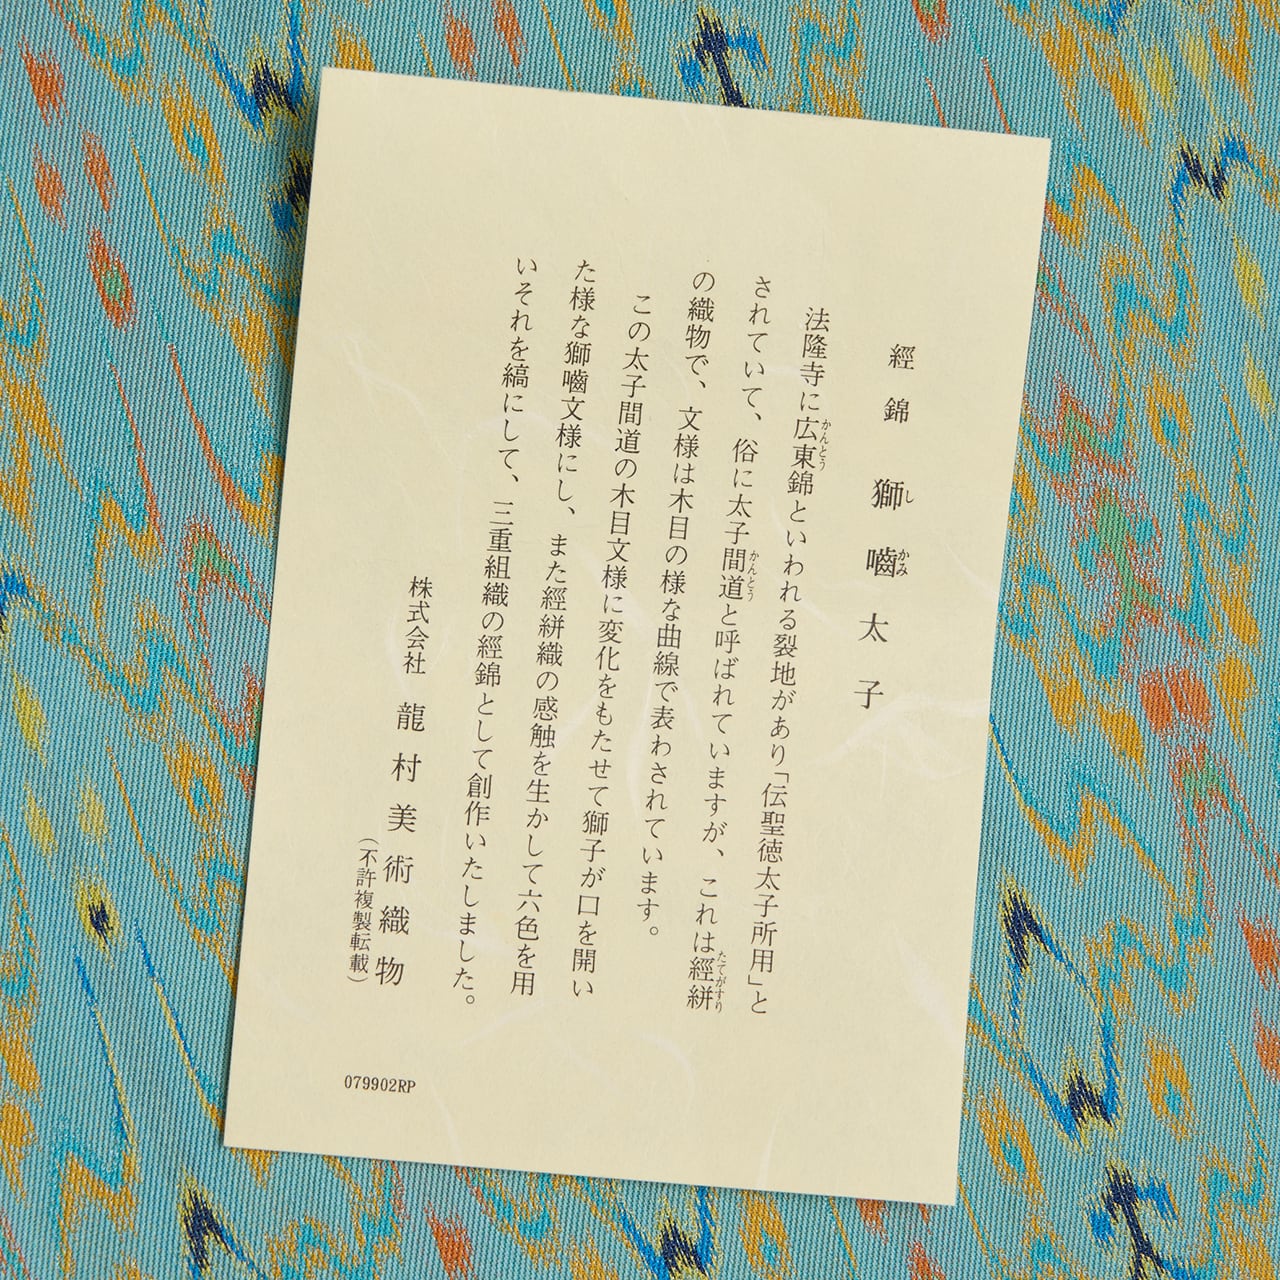 經錦 獅嚙太子
法隆寺に広東錦といわれる裂地があり「伝聖徳太子所用」と
されていて、俗に太子間道と呼ばれていますが、これは經絣
の織物で、文様は木目の様な曲線で表わされています。
この太子間道の木目文様に変化をもたせて獅子が口を開い
た様な獅嚙文様にし、また經絣織の感触を生かして六色を用
いそれを縞にして、三重組織の經錦として創作いたしました。
株式会社 龍村美術織物
（不許複製転載）
079902RP